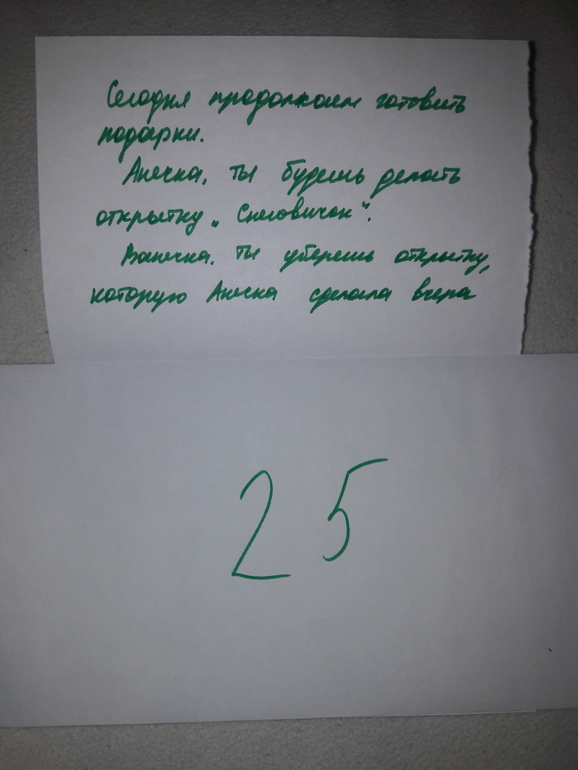 Сегодня продолжаем готовить
подарки.
Анечка, ты будешь делать
открытку „Снеговичок“.
Ванечка, ты уберешь открытку,
которую Анечка сделала вчера
25